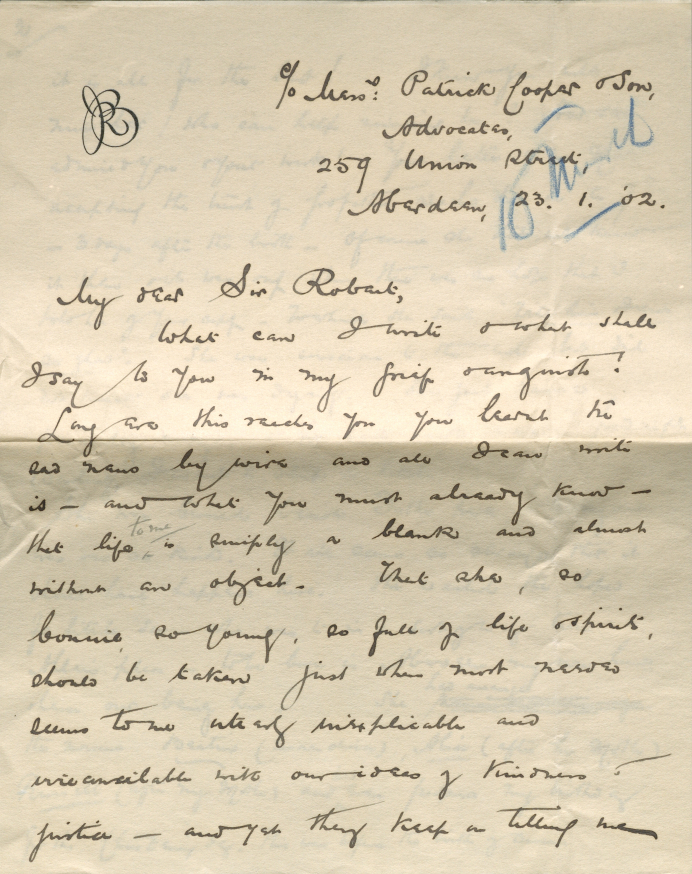 JB
c/o Messrs: Patrick Cooper & Son,
Advocates,
259 Union Street,
Aberdeen, 23. 1. '02.
My dear Sir Robert,
What can I write & what shall
I say to you in my grief & anguish!
Long ere this reaches you you learnt the
sad news by wire and all I can write
is – and what you must already know –
that life to me is simply a blank and almost
without an object. That she, so
bonnie, so young, so full of life & spirit,
should be taken just when most needed
seems to me utterly inexplicable and
irreconcilable with our ideas of kindness &
justice – and yet they keep on telling me